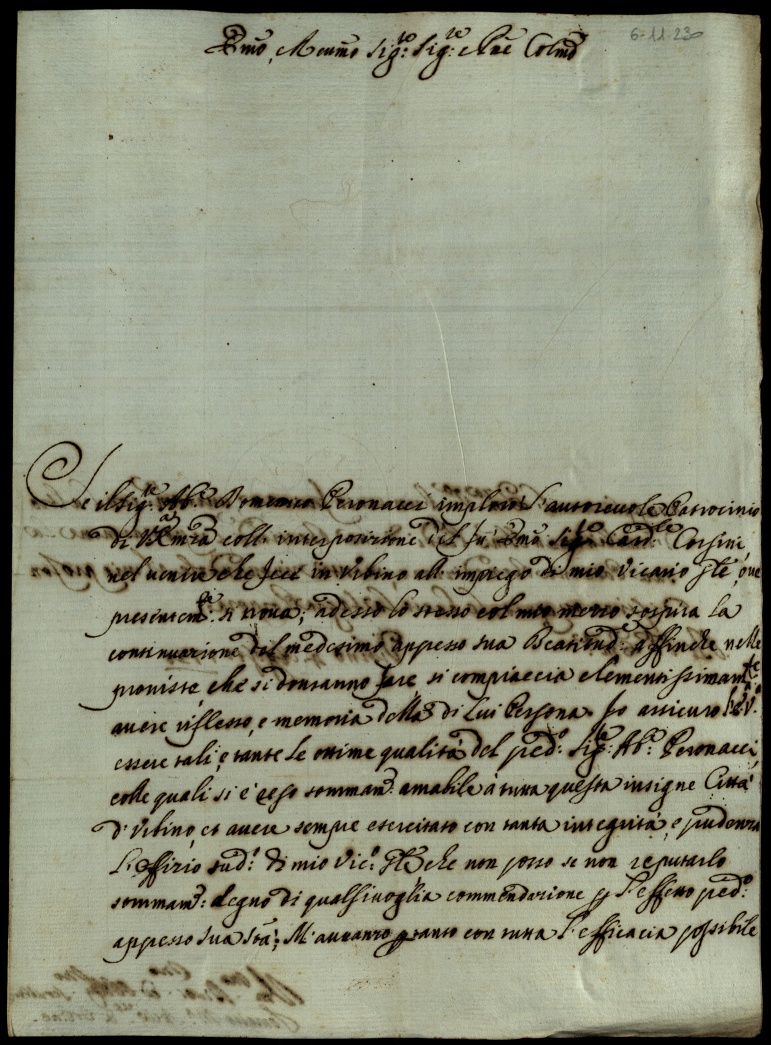 6-11-230
Emo, e Rmo Sig:re Sig:re e Pne Colmo
Se il Sig:re Ab:e Domenico Peronacci implorò l'autorevole Patrocinio
di V. Emza coll'interposizione del Sig:r Card:le Corsini
nel venire che fece in Urbino all'impiego di mio Vicario Gnle, ove
presentem:te si trova; adesso lo stesso col mio mezzo sospira la
continuazione del medesimo appresso sua Beatitud:e affinche nelle
proviste che si dovranno fare si compiaccia clementissimam:te
avere riflesso, e memoria della di lui Persona. Io assicuro
essere tali, e tante le ottime qualità del pred:o Sig:re Ab:e Peronacci,
colle quali si è reso sommam:e amabile a tutta questa insigne Città
d'Urbino, et avere sempre esercitato con tanta integrità, e prudenza
l'offizio sud:o di mio Vic:o Gnle che non posso se non reputarlo
sommam:e degno di qualsivoglia commendazione p l'effetto pred:o
appresso sua Stà; M'avvanzo ptanto con tutta l'efficacia possibile